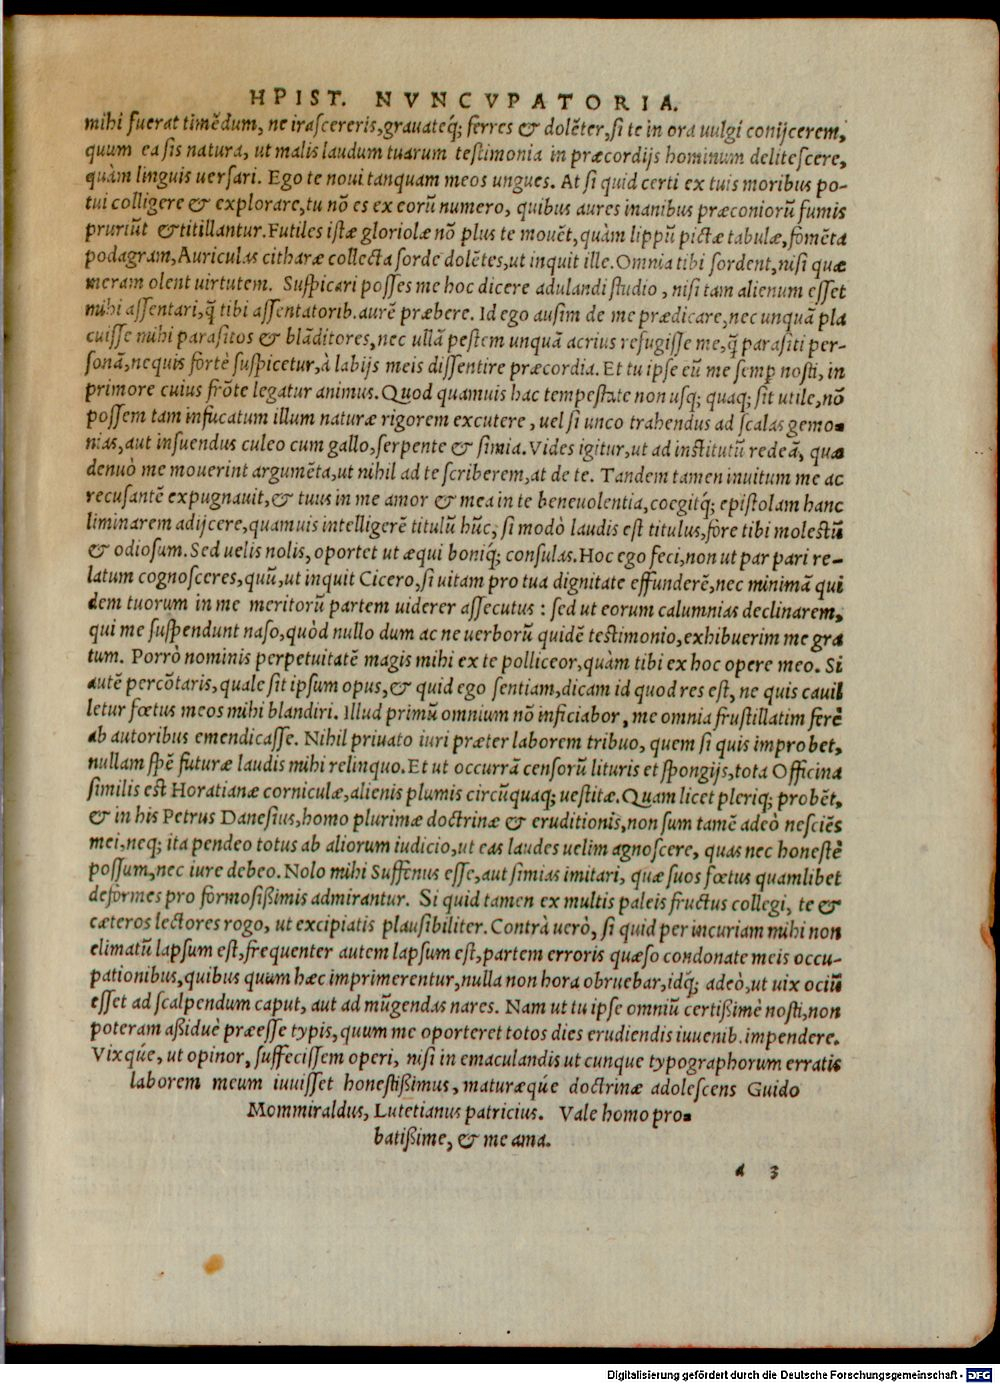 HPIST. NVNCVPATORIA.
mihi fuerat timẽdum, ne irascereris, grauateq́; ferres & dolẽter, si te in ora uulgi conijcerem,
quum ea sis natura, ut malis laudum tuarum testimonia in præcordijs hominum delitescere,
quàm linguis uersari. Ego te noui tanquam meos ungues. At si quid certi ex tuis moribus po-
tui colligere & explorare, tu nõ es ex eorũ numero, quibus aures inanibus præconiorũ fumis
pruriũt & titillantur. Futiles istæ gloriolæ nõ plus te mouẽt, quàm lippũ pictæ tabulæ, fomẽta
podagram, Auriculas citharæ collecta sorde dolẽtes, ut inquit ille. Omnia tibi sordent, nisi quæ
meram olent uirtutem. Suspicari posses me hoc dicere adulandi studio, nisi tam alienum esset
mihi assentari, q̃ tibi assentatorib. aurẽ præbere. Id ego ausim de me prædicare, nec unquã pla
cuisse mihi parasitos & blãditores, nec ullã pestem unquã acrius refugisse me, q̃ parasiti per-
sonã, nequis fortè suspicetur, à labijs meis dissentire præcordia. Et tu ipse eũ me semp nosti, in
primore cuius frõte legatur animus. Quod quamuis hac tempestate non usq; quaq; sit utile, nõ
possem tam infucatum illum naturæ rigorem excutere, uel si unco trahendus ad scalas gemo-
nias, aut insuendus culeo cum gallo, serpente & simia. Vides igitur, ut ad institutũ redeã, quæ
denuò me mouerint argumẽta, ut nihil ad te scriberem, at de te. Tandem tamen inuitum me ac
recusantẽ expugnauit, & tuus in me amor & mea in te beneuolentia, coegitq́; epistolam hanc
liminarem adijcere, quamuis intelligerẽ titulũ hũc, si modò laudis est titulus, fore tibi molestũ
& odiosum. Sed uelis nolis, oportet ut æqui boniq́; consulas. Hoc ego feci, non ut par pari re-
latum cognosceres, quũ, ut inquit Cicero, si uitam pro tua dignitate effunderẽ, nec minimã qui
dem tuorum in me meritorũ partem uiderer assecutus: sed ut eorum calumnias declinarem,
qui me suspendunt naso, quòd nullo dum ac ne uerborũ quidẽ testimonio, exhibuerim me gra
tum. Porrò nominis perpetuitatẽ magis mihi ex te polliceor, quàm tibi ex hoc opere meo. Si
autẽ percõtaris, quale sit ipsum opus, & quid ego sentiam, dicam id quod res est, ne quis cauil
letur fœtus meos mihi blandiri. Illud primũ omnium nõ inficiabor, me omnia frustillatim ferè
ab autoribus emendicasse. Nihil priuato iuri præter laborem tribuo, quem si quis improbet,
nullam spẽ futuræ laudis mihi relinquo. Et ut occurrã censorũ lituris et spongijs, tota Officina
similis est Horatianæ corniculæ, alienis plumis circũquaq; uestitæ. Quam licet pleriq; probẽt,
& in his Petrus Danesius, homo plurimæ doctrinæ & eruditionis, non sum tamẽ adeò nesciẽs
mei, neq; ita pendeo totus ab aliorum iudicio, ut eas laudes uelim agnoscere, quas nec honestè
possum, nec iure debeo. Nolo mihi Suffenus esse, aut simias imitari, quæ suos fœtus quamlibet
deformes pro formosißimis admirantur. Si quid tamen ex multis paleis fructus collegi, te &
cæteros lectores rogo, ut excipiatis plausibiliter. Contrà uerò, si quid per incuriam mihi non
elimatũ lapsum est, frequenter autem lapsum est, partem erroris quæso condonate meis occu-
pationibus, quibus quum hæc imprimerentur, nulla non hora obruebar, idq́; adeò, ut uix ociũ
esset ad scalpendum caput, aut ad mũgendas nares. Nam ut tu ipse omniũ certißimè nosti, non
poteram aßiduè præesse typis, quum me oporteret totos dies erudiendis iuuenib. impendere.
Vixqúe, ut opinor, suffecissem operi, nisi in emaculandis ut cunque typographorum erratis
laborem meum iuuisset honestißimus, maturæqúe doctrinæ adolescens Guido
Mommiraldus, Lutetianus patricius. Vale homo pro-
batißime, & me ama.
a 3
Digitalisierung gefördert durch die Deutsche Forschungsgemeinschaft - DFG